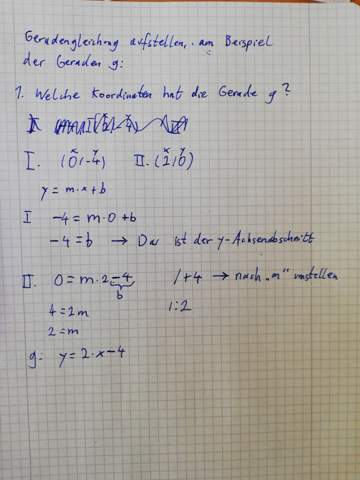 Geradengleichung aufstellen, am Beispiel
der Geraden g:
1. Welche Koordinaten hat die Gerade g?
I. (0|-4) II. (2|0)
x y x y
y = m·x+b
I -4 = m·0+b
-4 = b → Das ist der y-Achsenabschnitt
II. 0 = m·2-4 /+4 → nach "m" umstellen
b
4 = 2m /:2
2 = m
g: y = 2·x-4